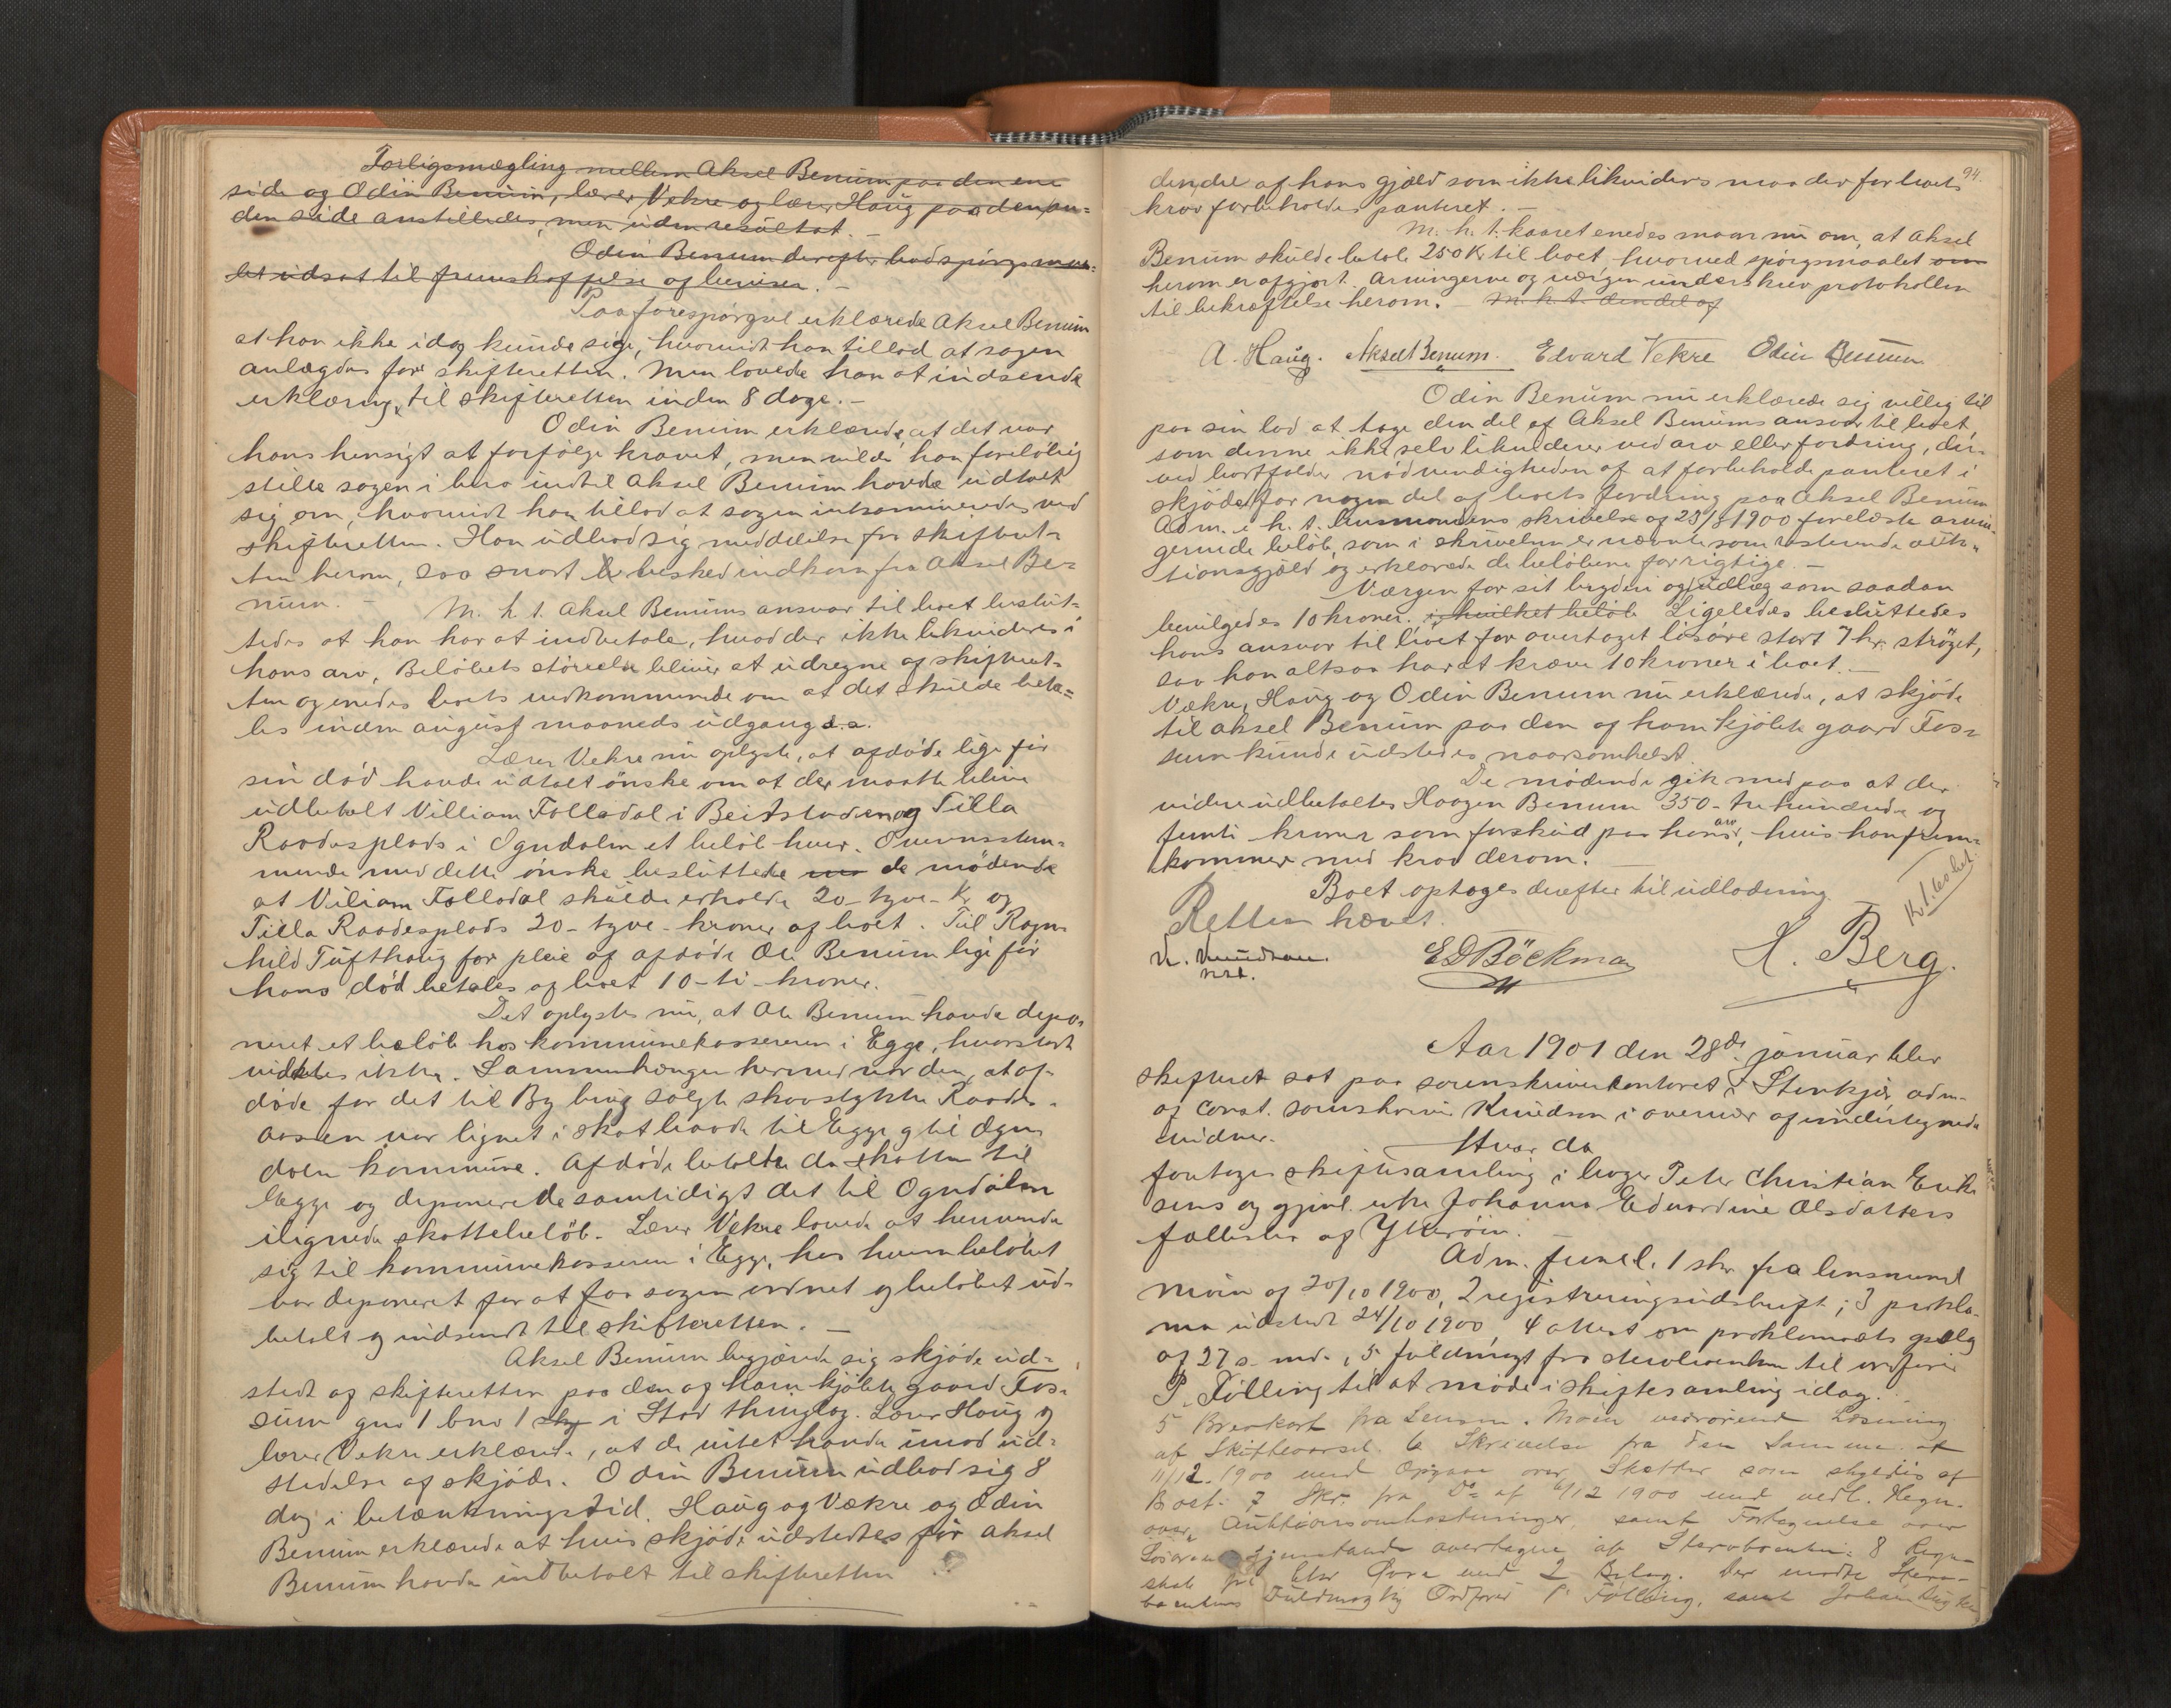 Forligsmægling mellem Aksel Benum paa den ene
side og Odin Benum, lærer Vekre og lærer Haug paa den an-
den side anstilledes, men uden resultat. –
Odin Benum derefter bad spørgsmaa-
let udsat til fremskaffelse af beviser. –
Paa forespørgsel erklærede Aksel Benum
at han ikke idag kunde sige, hvorvidt han tillod at sagen
anlægdes for skifteretten. Men lovede han at indsende
erklæring til skifteretten inden 8 dage. –
Odin Benum erklærede, at det var
hans hensigt at forfølge kravet, men vilde han foreløbig
stille sagen i bero indtil Aksel Benum havde udtalt
sig om, hvorvidt han tillod at sagen ved
skifteretten. Han udbad sig meddelelse fra skifteret-
ten herom, saa snart besked indkom fra Aksel Be-
num. – M. h. t. Aksel Benums ansvar til boet beslut-
tedes at han har at indbetale, hvad der ikke likvideres i
hans arv, Beløbets størrelse bliver at udregne af skifteret-
ten og enedes boets vedkommende om at det skulde beta-
les inden august maaneds udgang d.a.
Lærer Vekre nu oplyste, at afdøde lige før
sin død havde udtalt ønske om at der maatte blive
udbetalt Villiam Følledal i Beitstaden og Tilla
Raadesplads i Ogndalen et beløb hver. Overensstem-
mende med dette ønske besluttede de mødende
at Viliam Følledal skulde erholde 20 – tyve – Kr og
Tilla Raadesplads 20 – tyve – kroner af boet. Til Ragn-
hild Tufthaug for pleie af afdøde Ole Benum lige før
hans død betales af boet 10 – ti – kroner.
Det oplystes nu, at Ole Benum havde depo-
neret et beløb hos kommunekassereren i Egge, hvor stort
vidstes ikke. Sammenhængen hermed var den, at af-
døde for det til By brug solgte skovstykke Raades-
aasen var lignet i skat baade til Egge og til Ogn-
dalen kommune. Afdøde betalte da skatten til
Egge og deponerede samtidigt det til Ogndalen
ilignede skattebeløb. Lærer Vekre lovede at henvende
sig til kommunekassereren i Egge, hos hvem beløbet
var deponeret for at faa sagen ordnet og beløbet ud-
betalt og indsendt til skifteretten. –
Aksel Benum begjærede sig skjøde ud-
stedt af skifteretten paa den af ham kjøbte gaard Fos-
sum gno 1 bno 1 i Stod thinglag. Lærer Haug og
lærer Vekre erklærede, at de intet havde imod ud-
stedelse af skjøde. Odin Benum udbad sig 8
dag i betænkningstid. Haug og Vekre og Odin
Benum erklærede at hvis skjøde udstedtes før Aksel
Benum havde indbetalt til skifteretten
94.
den del af hans gjæld som ikke likvideres maa der for boets
krav forbeholdes panteret. –
M. h. t. kaaret enedes man nu om, at Aksel
Benum skulde betale 250 Kr til boet hvorved spørgsmaalet om
herom er afgjort. Arvingerne og værgen underskrev protokollen
til bekræftelse herom. – M. h. t. den del af
A. Haug. Aksel Benum. Edvard Vekre Odin Benum
Odin Benum nu erklærede sig villig til
paa sin lod at tage den del af Aksel Benums ansvar til boet,
som denne ikke selv likviderer ved arv eller fordring, der-
ved bortfalder nødvendigheden af at forbeholde panteret i
skjødet for nogen del af boets fordring paa Aksel Benum
Adm. i h. t. lensmandens skrivelse af 23/8 1900 forelæste arvin-
gerne de beløb, som i skrivelsen er nævnte som resterende auk-
tionsgjæld og erklærede de beløbene for rigtige. –
Værgen for sit bryderi og udlæg som saadan
bevilgedes 10 kroner. i hvilket beløb Ligeledes besluttedes
hans ansvar til boet for overtaget løsøre stort 7 kr. strøget,
saa han altsaa har at kræve 10 kroner i boet. –
Vekre, Haug og Odin Benum nu erklærede, at skjøde
til Aksel Benum paa den af ham kjøbte gaard Fos-
sum kunde udstedes naarsomhelst.
De mødende gik med paa at der
videre udbetaltes Haagen Benum 350 – tre hundrede og
femti kroner som forskud paa hans arv, hvis han frem-
kommer med krav derom.
Boet optages derefter til udlodning
Retten hævet.
K. Knudsen. E D Böckman H. Berg.
Aar 1901 den 28de januar blev
skifteret sat paa sorenskriverkontoret i Stenkjær adm-
af const. sorenskriver Knudsen i overvær af undertegnede
vidner. Hvor da
foretoges skiftesamling i boger Peter Christian Erik-
sens og gjenl. enke Johanna Edvardine Olsdatters
fællesbo af Ytterøen.
Adm. freml. 1 skr. fra lensmand
Moin af 20/10 1900, 2 registreringsudskrift; 3 prokla-
ma udstedt 24/10 1900, 4 attest om proklamaets
af 27 s. md., 5 fuldmagt fra sterboenken til ordfører
P. Følling til at møde i skiftesamling idag.
5 Brevkort fra Lensm. Moin vedrørende Læsning
af Skiftevarsel. 6 Skrivelse fra den samme af
11/12 1900 med Opgave over Skatter som skyldes af
Boet. 7 Skr. fra Do af 11/12 1900 med vedl. Regn.
over Auktionsomkostninger samt Fortegnelse over
Løsøregjenstande overtagne af Sterboenken. 8 Regn-
skab fra med 2 Bilag. Der mødte Ster-
boenkens Fuldmægtig Ordfører P Følling, samt Johan